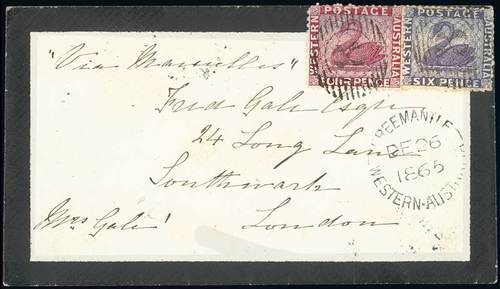 WESTERN
POSTAGE
AUSTRALIA
FOUR PENCE
WESTERN
POSTAGE
AUSTRALIA
SIX PENCE
"Via Marseilles"
Fred Gale Esqre
24 Long Lane
Southwark
London
Mrs Gale
FREEMANTLE
DE 26
1865
WESTERN-AUST